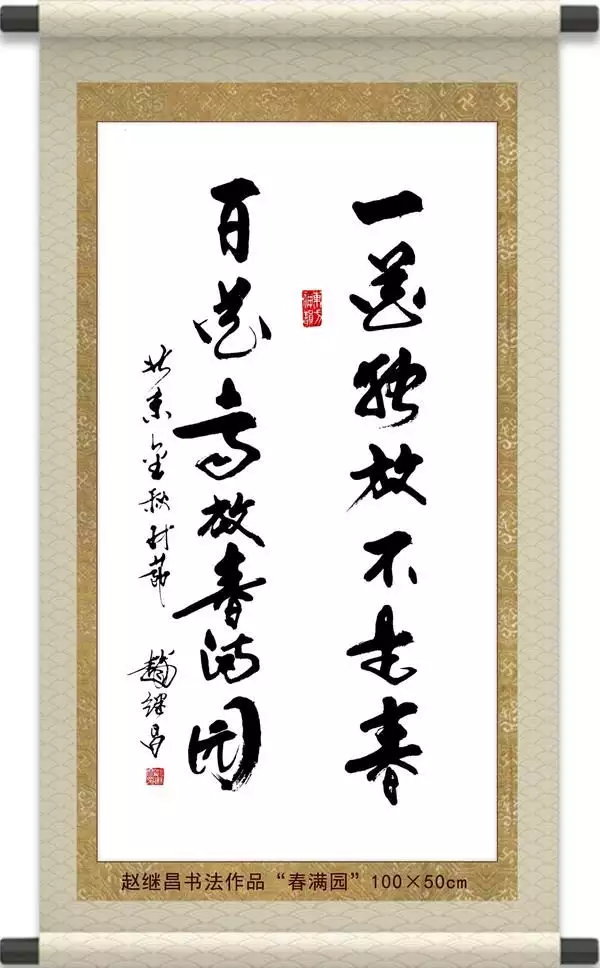 一花独放不是春
百花齐放春满园
北京金秋时节 趙继昌
赵继昌书法作品“春满园”100×50cm